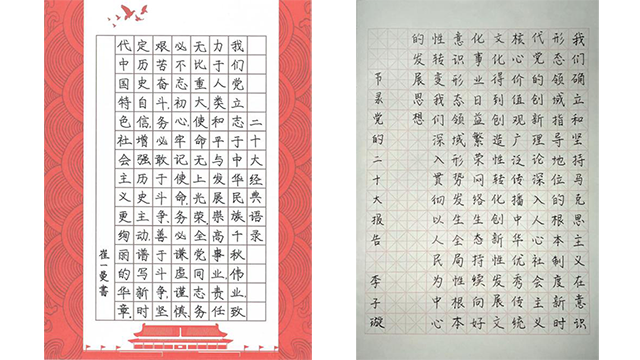 二十大经典语录
我们党立志于中华民族千秋伟业,致
力于人类和平与发展崇高事业,责任
无比重大,使命无上光荣。全党同志务
必不忘初心、牢记使命,务必谦虚谨慎、
艰苦奋斗,务必敢于斗争、善于斗争,坚
定历史自信,增强历史主动,谱写新时
代中国特色社会主义更绚丽的华章。
崔一曼書
我们确立和坚持马克思主义在意识
形态领域指导地位的根本制度新时
代党的创新理论深入人心社会主义
核心价值观广泛传播中华优秀传统
文化得到创造性转化创新性发展文
化事业日益繁荣网络生态持续向好
意识形态领域形势发生全局性根本
性转变我们深入贯彻以人民为中心
的发展思想
节录党的二十大报告 李子璇